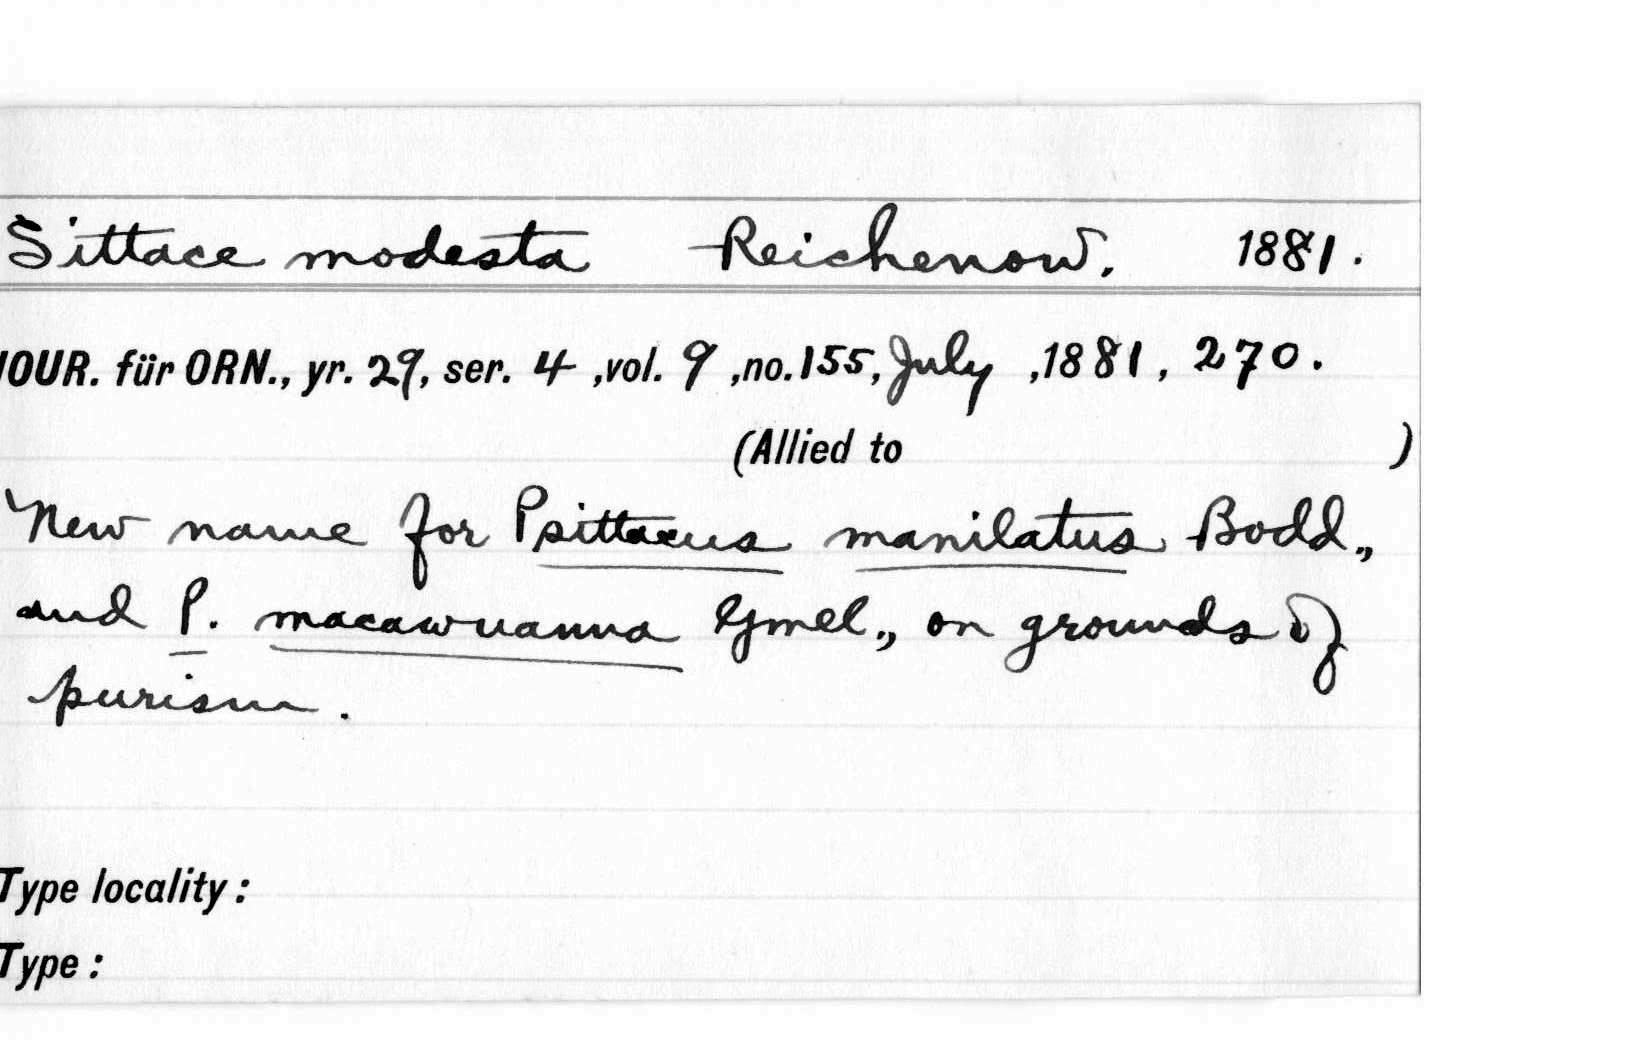 Sittace modesta Reichenow. 1881.
JOUR. für ORN., yr. 29, ser. 4 ,vol. 9 ,no. 155, July ,1881, 270.
(Allied to )
New name for Psittacus manilatus Bodd.,
and P. macawuanna Gmel., on grounds of
purism.
Type locality :
Type :